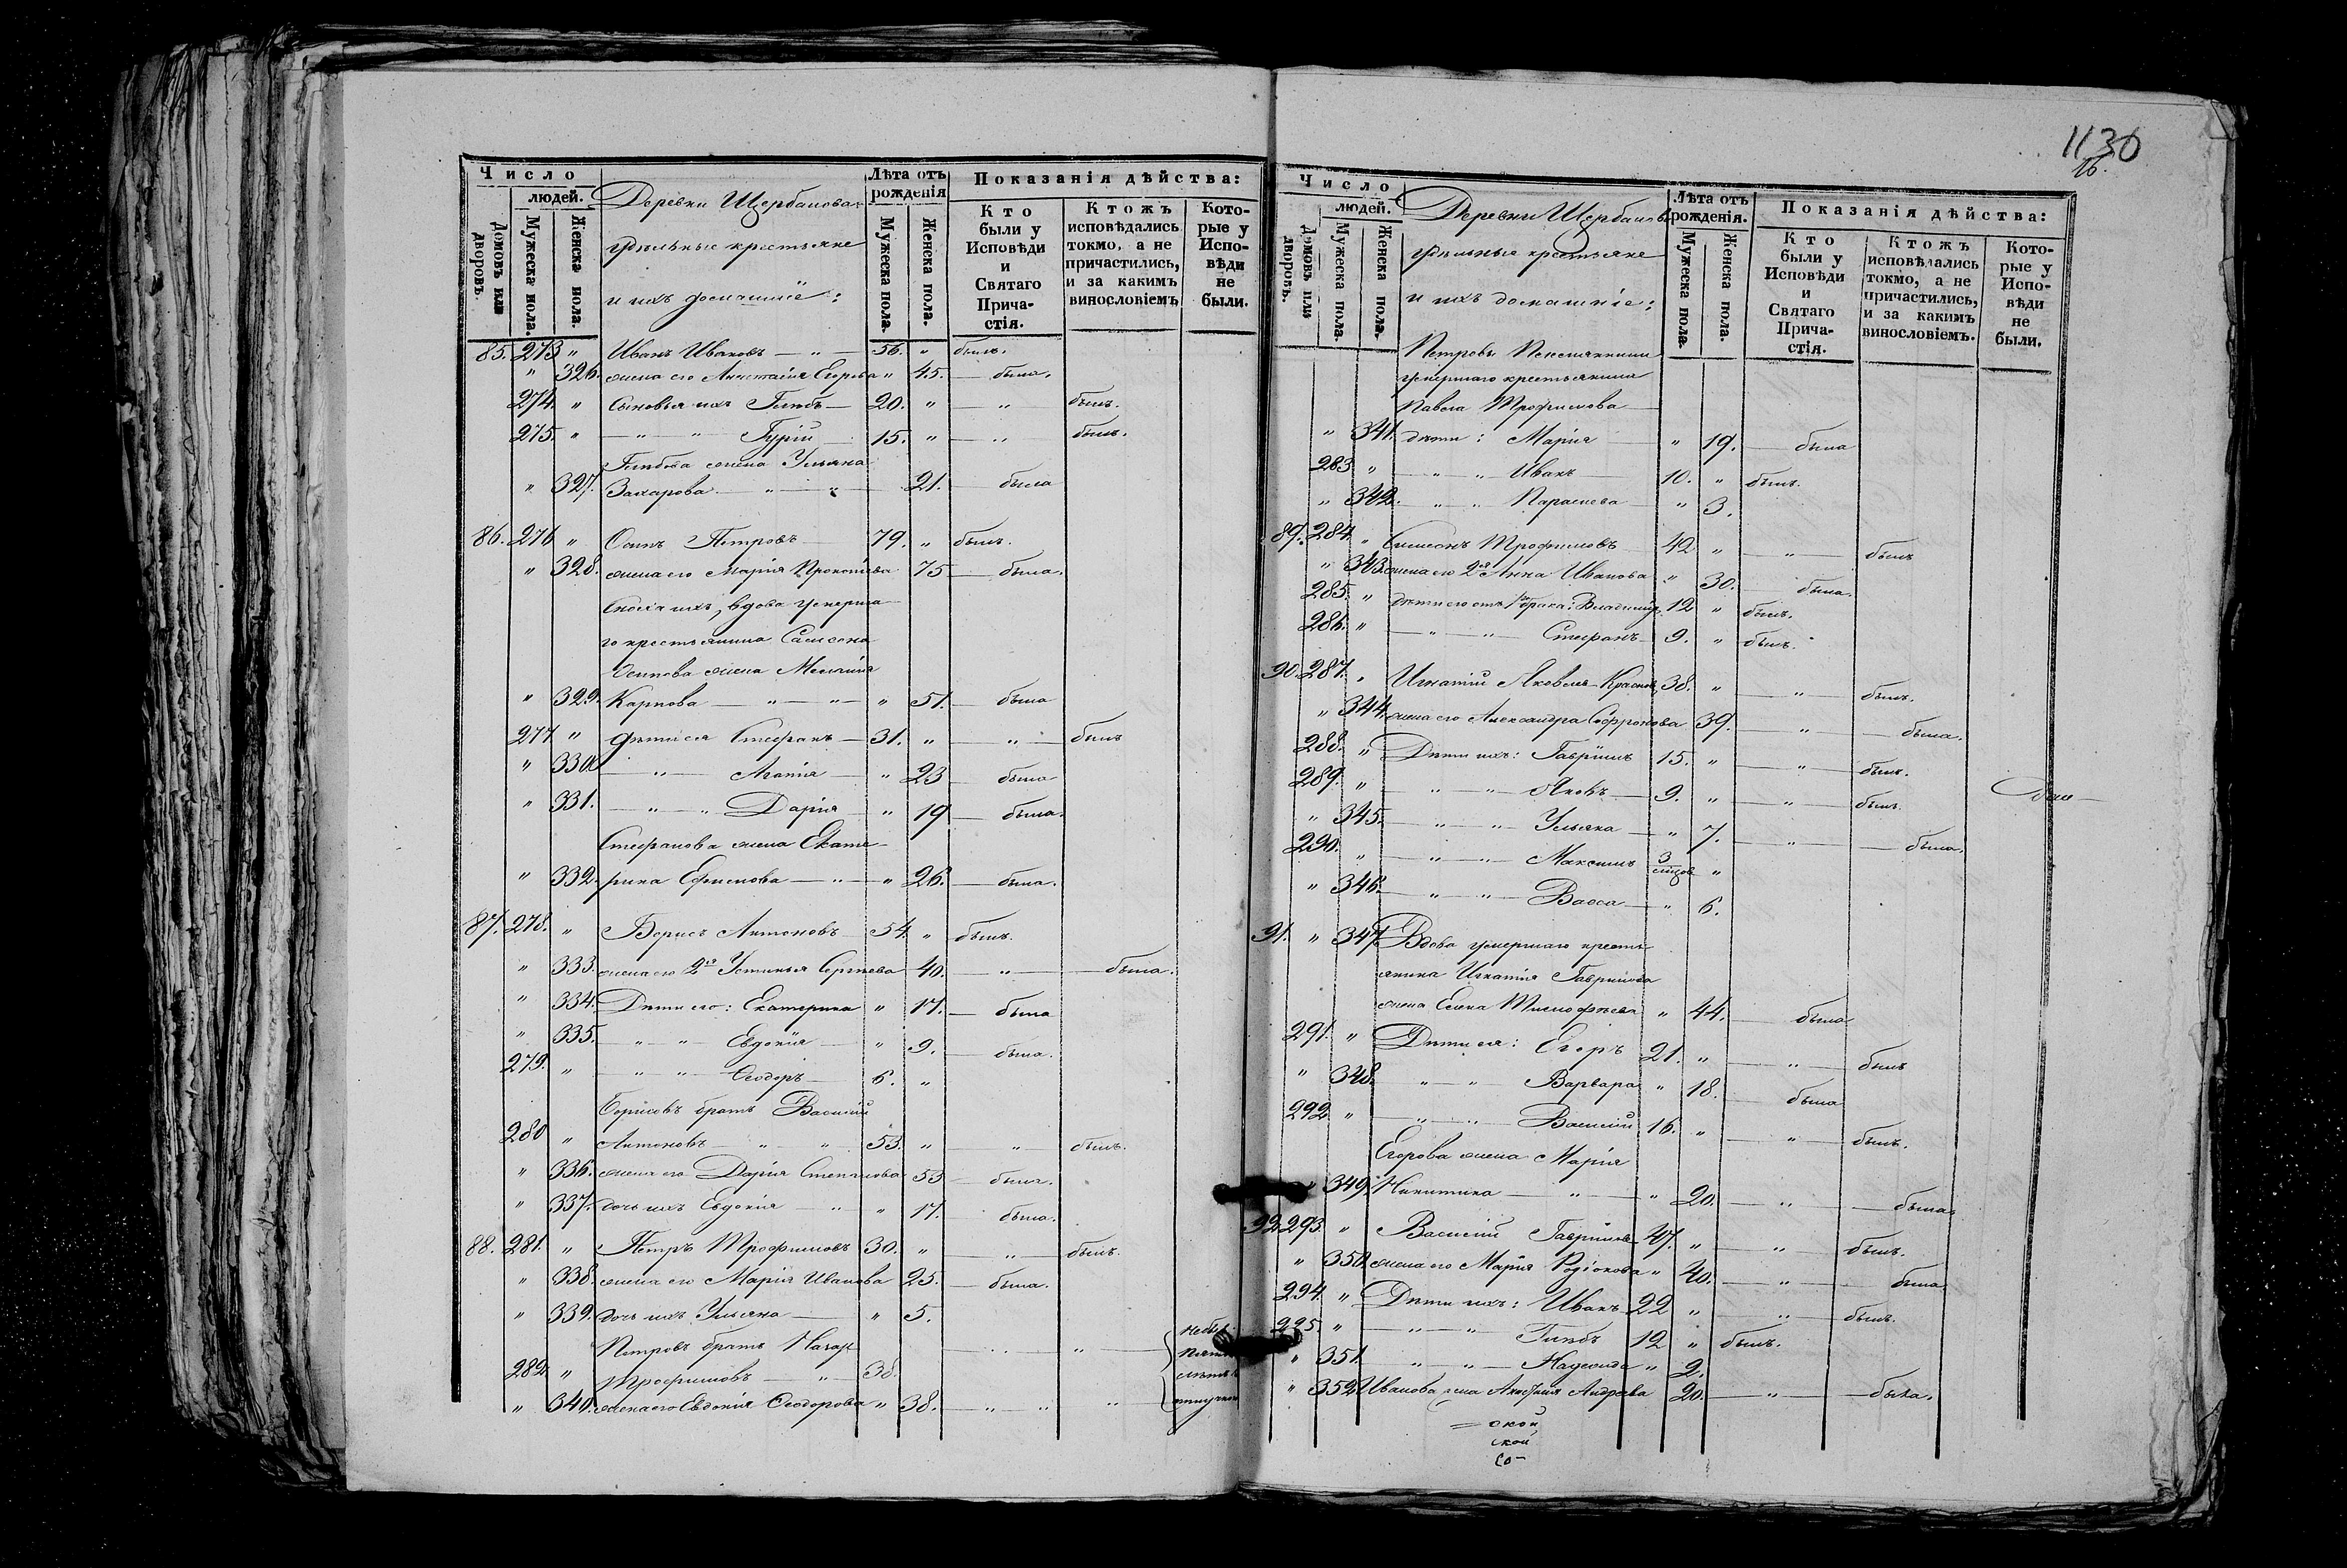 1130
16.
Число
людей.
Домовъ или дворовъ.
Мужеска пола.
Женска пола.
Деревни Щербанова
удѣльные крестьяне
и ихъ домашніе:
Лѣта отъ рожденія
Мужеска пола.
Женска пола.
Показанія дѣйства:
Кто были у Исповѣди и Святаго Причастія.
Ктожъ исповѣдались токмо, а не причастились, и за какимъ винословіемъ
Которые у Исповѣди не были.
85. 273 " Иванъ Ивановъ — " — 56. " былъ.
" 326. жена его Анастасія Егорова " 45. — была.
274. " Сыновья ихъ Глѣбъ — 20. " — " былъ.
275. " — " — " Гурій — 15. " — " былъ.
Глѣбова жена Ульяна
" 327. Захарова — " — " 21. — была
86. 276 " Осипъ Петровъ — 79. " былъ.
" 328. жена его Марія Прокопіева 75 — была.
Сноха ихъ, вдова умерша
го крестьянина Самсона
Осипова жена Меланія
" 329. Карпова — " — " — " 51. — была
277 " дѣти ея Стефанъ — 31. " — " — былъ
" 330. — " — Агапія — " 23 — была
" 331. — " — " Дарія — " 19 — была.
Стефанова жена Екате-
" 332. рина Ефимова — " — " 26. — была.
87. 278. " Борисъ Антоновъ 54. " былъ.
" 333. жена его 2я Устинья Сергѣева 40. — " — была.
" 334. Дѣти его: Екатерина " 17. — была
" 335. — " — " Евдокія — " 9. — была.
279. " — " — " Ѳеодоръ — 6. "
Борисовъ братъ Василій
280 " Антоновъ — " — " 53. " " былъ.
" 336. жена его Дарія Степанова 53 — была.
" 337. дочь ихъ Евдокія — " " 17. была.
88. 281. " Петръ Трофимовъ 30. " — " — былъ.
" 338. жена его Марія Иванова 25. — была.
" 339. дочь ихъ Ульяна — " 5.
Петровъ братъ Назаръ
282 " Трофимовъ — " — 38.
" 340. жена его Евдокія Ѳеодорова " 38. — " " "
Число
людей.
Домовъ или дворовъ.
Мужеска пола.
Женска пола.
Деревни Щербанова
удѣльные крестьяне
и ихъ домашніе:
Лѣта отъ рожденія.
Мужеска пола.
Женска пола.
Показанія дѣйства:
Кто были у Исповѣди и Святаго Причастія.
Ктожъ исповѣдались токмо, а не причастились, и за какимъ винословіемъ.
Которые у Исповѣди не были.
Петровы Племянники
умершаго крестьянина
Павла Трофимова
" 341. дѣти: Марія — " 19. — была
283 " — " — " Иванъ — 10. " былъ.
" 342. — " — " Параскева — " 3.
89. 284. " Симеонъ Трофимовъ 42 " — " — былъ
" 343. жена его 2я Анна Иванова " 30. — была.
285. " дѣти его отъ 1го брака: Владиміръ 12 " былъ.
286. " — " — " Стефанъ 9. " былъ.
90. 287. " Игнатій Яковлевъ Красновъ 38. " — " — былъ.
" 344. жена его Александра Софронова 39. — " — была.
288. " Дѣти ихъ: Гавріилъ 15. " — " — былъ.
289. " " — " — Яковъ — 9. " — " — былъ.
" 345. — " — " — Ульяна — " 7. — " — была.
290. " — " — " — Максимъ 3 мѣсяц. "
" 346. — " — " — Васса — " 6.
91. " 347. Вдова умершаго кресть-
янина Игнатія Гаврилова
жена Елена Тимофѣева " 44. — была
291. " Дѣти ея: Егоръ 21. " — " — былъ
" 348. — " — " Варвара " 18. — была
292. " — " — " Василій 16. " — " — былъ.
Егорова жена Марія
349. Никитина — " — " 20. — " — была.
92. 293. " Василій Гавриловъ 47. " — " — былъ.
" 350. жена его Марія Родіонова " 40. — " — была
294. " Дѣти ихъ: Иванъ 22 " — " — былъ.
295. " — " — " Глѣбъ 12 " былъ.
" 351. — " — " — Надежда " 2.
" 352. Иванова жена Андрѣева 20. — " — была.